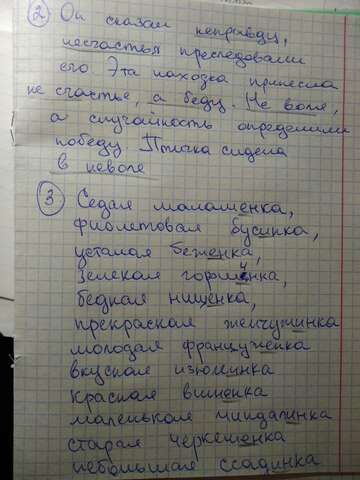 2 Он сказал неправду,
несчастья преследовали
его Эта находка принесла
не счастье, а беду. Не воля,
а случайность определили
победу. Птичка сидела
в неволе
3 Седая малашенка,
фиолетовая бусинка,
усталая беженка,
зелекая горлинка,
бедная нищенка,
прекраская жемчужинка
молодая француженка
вкусная изюминка
красная вишенка
маленькая миндалинка
старая черкешенка
небольшая ссадинка